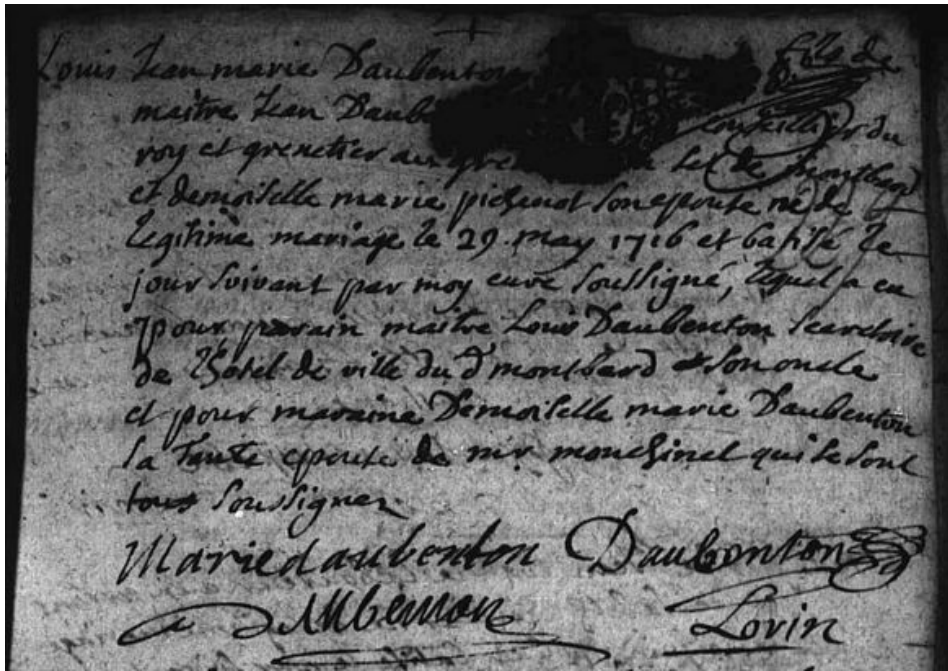 Louis Jean marie Daubenton fils de
maitre Jean Daub conseillier du
roy et grenetier au gre sel de montbard
et demoiselle marie pichenot son epouse né de
legitime mariage le 29 may 1716 et batisé le
jour suivant par moy curé soussigné, lequel a eu
pour parain maitre Louis Daubenton secretaire
de l'hotel de ville du d montbard son oncle
et pour maraine Demoiselle marie Daubenton
sa tante epouse de mr monchinet qui se sont
tous soussignez
Marie daubenton Daubenton
Lorin